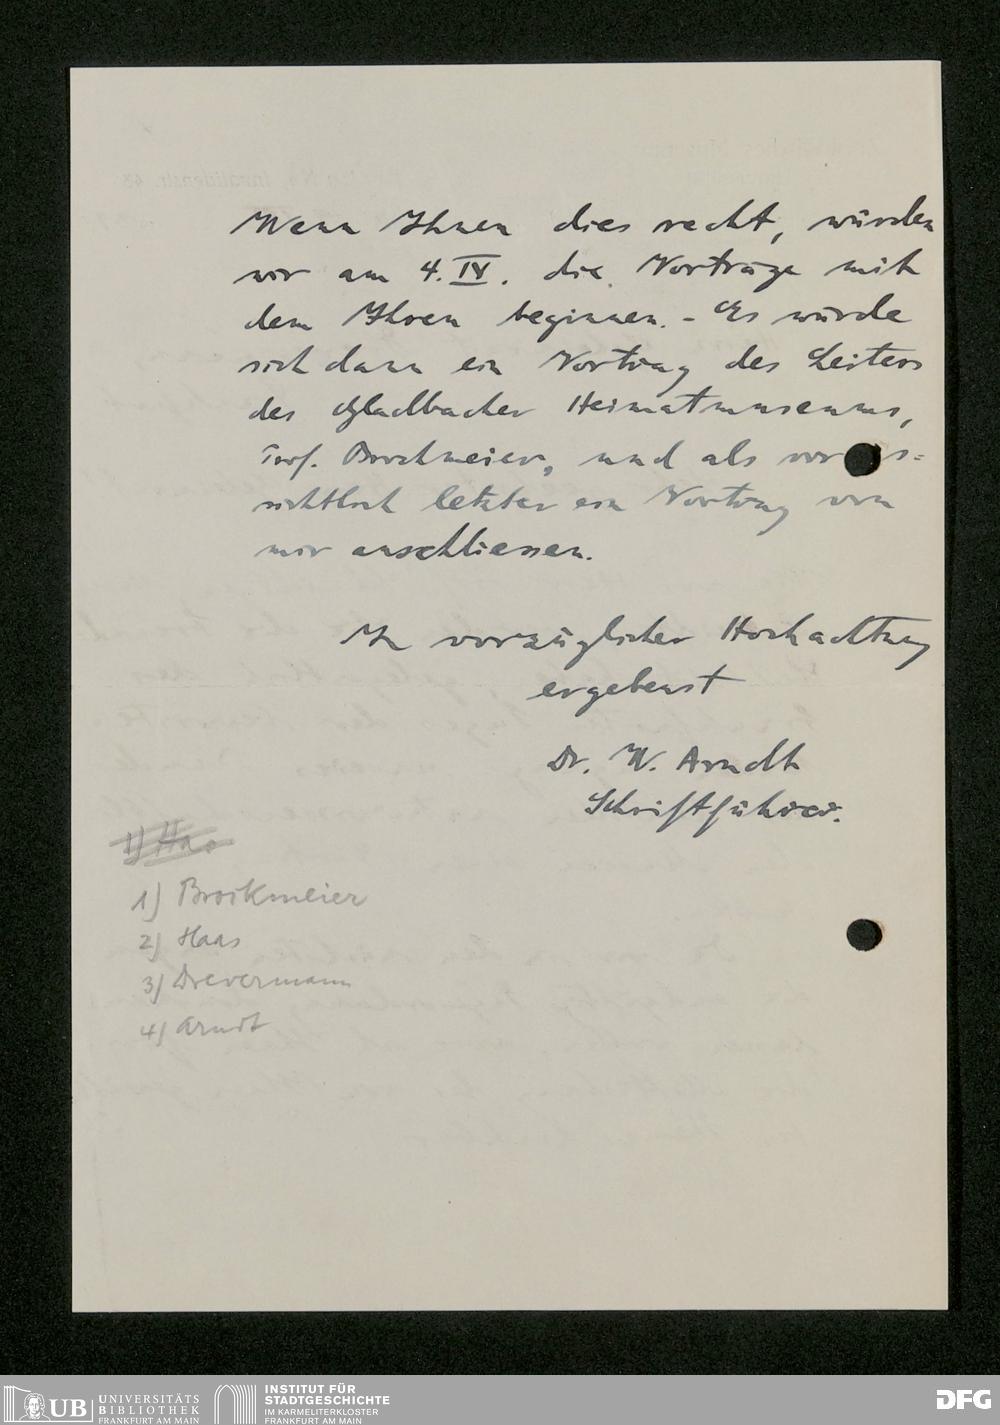 Wenn Ihnen dies recht, würden
wir am 4. IV. die Vorträge mit
dem Ihren beginnen. - Es würde
sich dann ein Vortrag des Leiters
des Gladbacher Heimatmuseums,
Prof. Brockmeier, und als vor s-
sichtlich letzter ein Vortrag von
mir anschliessen.
In vorzüglicher Hochachtung
ergebenst
Dr. W. Arndt
Schriftführer.
1) Haa
1) Brockmeier
2) Haas
3) Drevermann
4) Arndt
UB UNIVERSITÄTS
BIBLIOTHEK
FRANKFURT AM MAIN
INSTITUT FÜR
STADTGESCHICHTE
IM KARMELITERKLOSTER
FRANKFURT AM MAIN
DFG